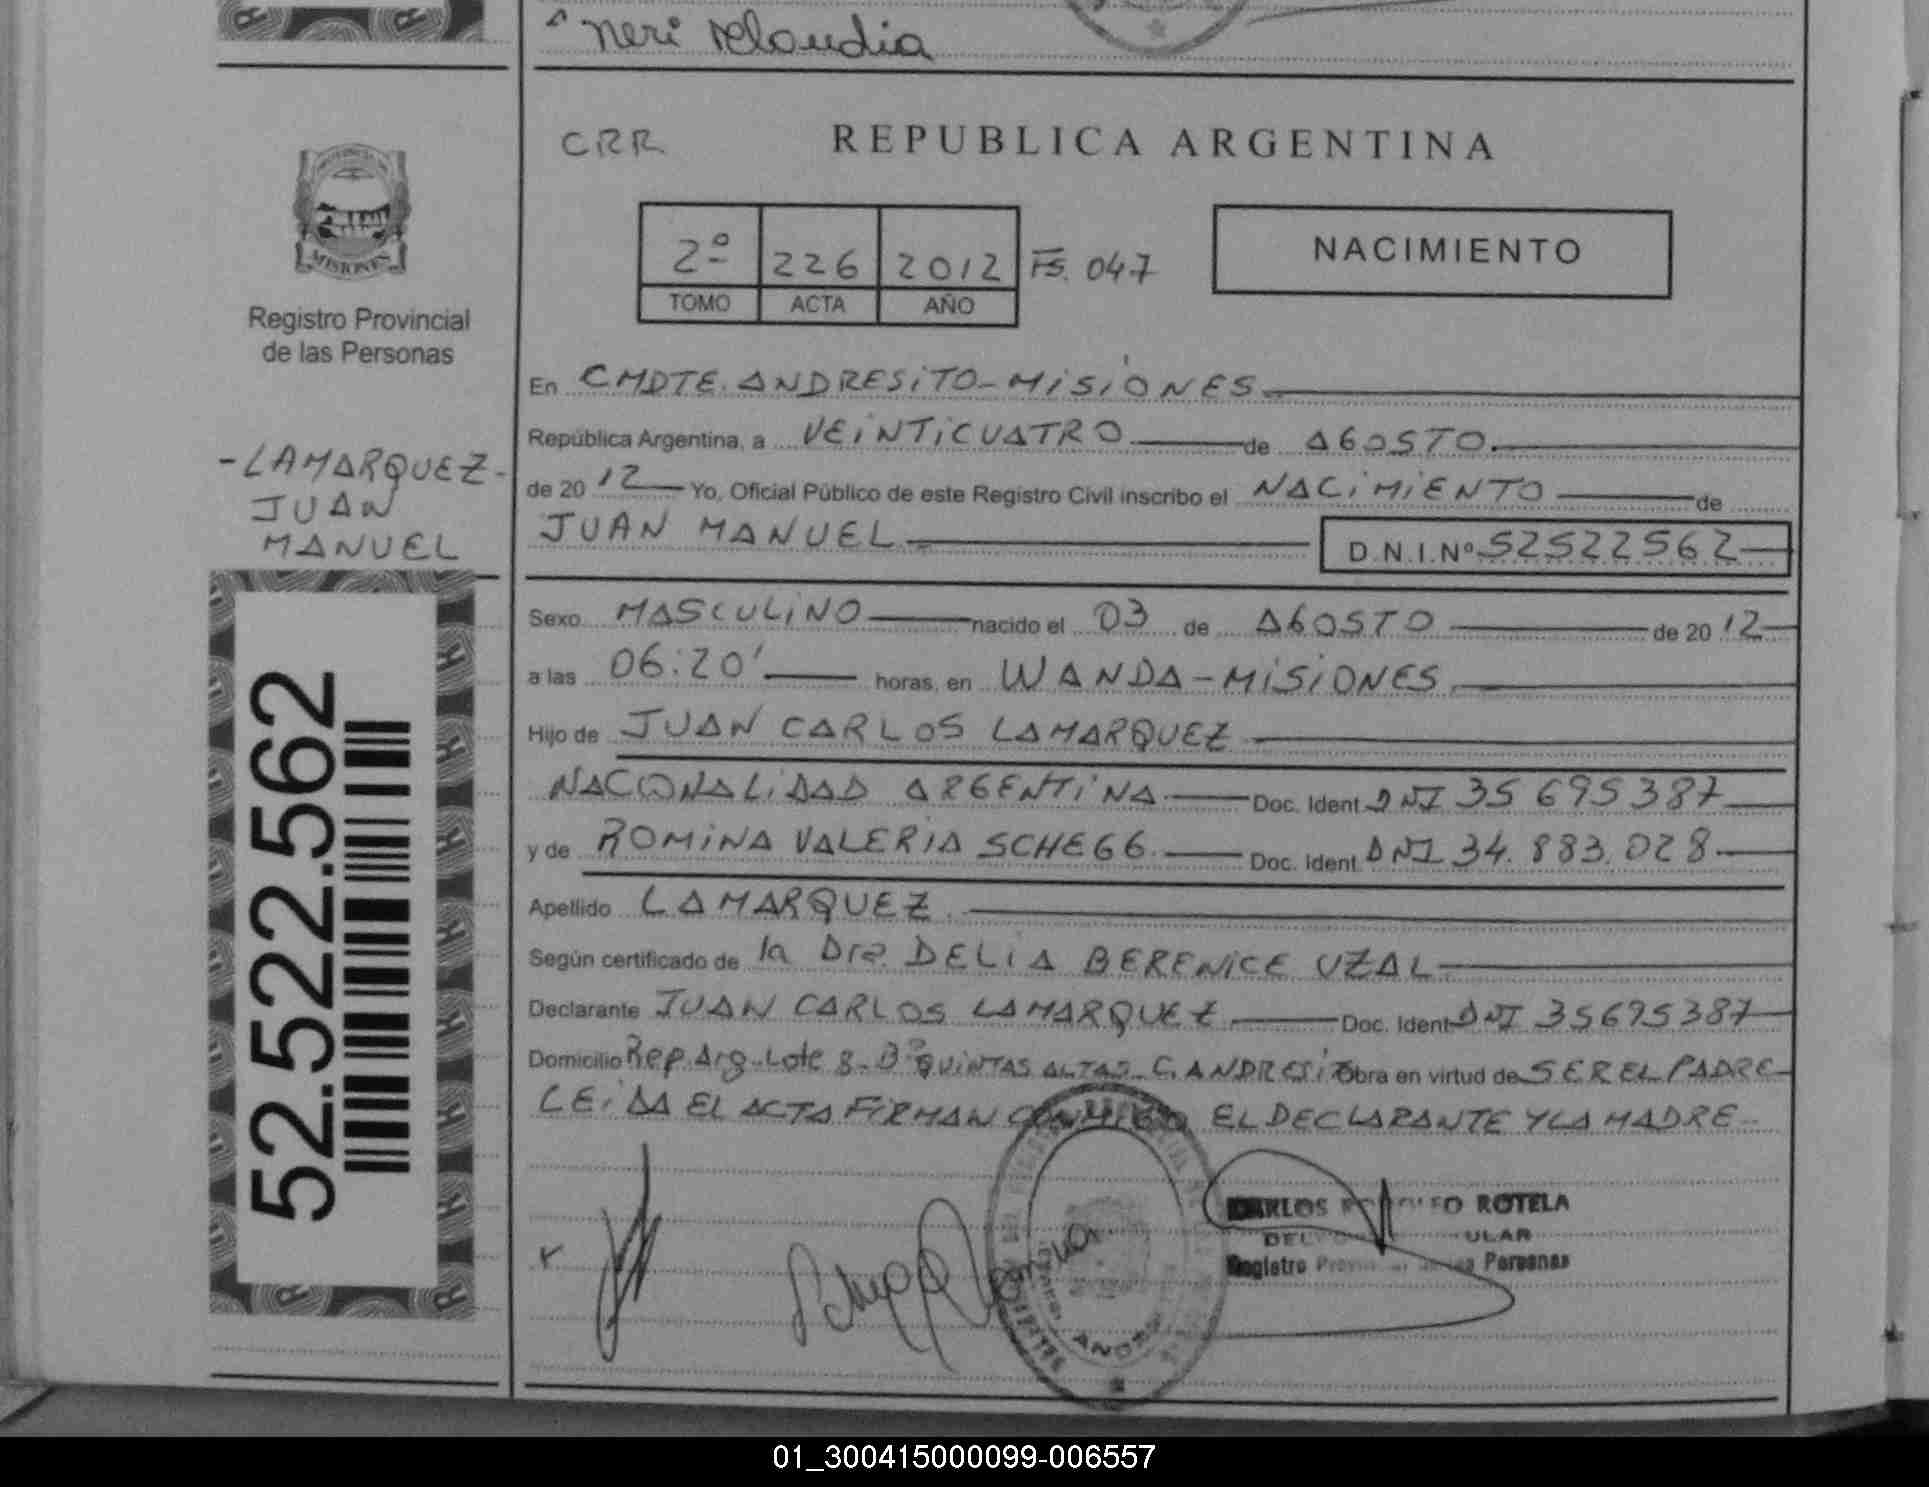 Neri Claudia
CRR
REPUBLICA ARGENTINA
2º 226 2012 FS. 047
TOMO ACTA AÑO
NACIMIENTO
MISIONES
Registro Provincial
de las Personas
-LAMARQUEZ-
JUAN
MANUEL
52.522.562
En CMDTE. ANDRESITO-MISIONES
República Argentina, a VEINTICUATRO de AGOSTO
de 20 12 Yo, Oficial Público de este Registro Civil inscribo el NACIMIENTO de
JUAN MANUEL D.N.I.Nº 52522562
Sexo MASCULINO nacido el 03 de AGOSTO de 20 12
a las 06:20' horas, en WANDA-MISIONES
Hijo de JUAN CARLOS LAMARQUEZ
NACIONALIDAD ARGENTINA Doc. Ident. DNI 35695387
y de ROMINA VALERIA SCHEGG Doc. Ident. DNI 34.883.028
Apellido LAMARQUEZ
Según certificado de la Dra. DELIA BERENICE UZAL
Declarante JUAN CARLOS LAMARQUEZ Doc. Ident. DNI 35695387
Domicilio Rep. Arg-Lote 8-Bº QUINTAS ALTAS-C. ANDRESITO Obra en virtud de SER EL PADRE
LEIDA EL ACTA FIRMAN CONMIGO EL DECLARANTE Y LA MADRE-
CARLOS ROTELA
Registro Personas
01_300415000099-006557